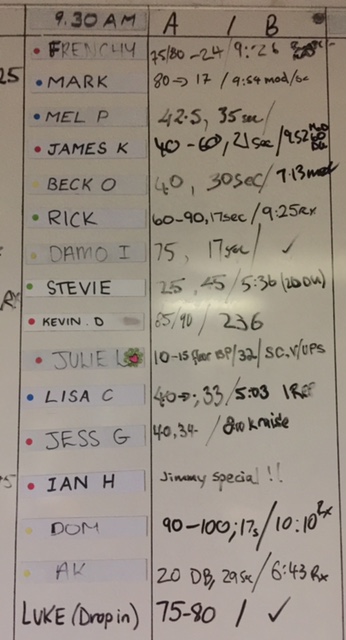 9.30 AM A / B
FRENCHY 75/80 - 24 / 9:26
25 MARK 80 → 17 / 9:54 mod/
MEL P 42.5, 35sec /
JAMES K 40 - 60, 21sec / 9:52
BECK O 40, 30sec / 7:13 mod
RICK 60-90, 17sec / 9:25 Rx
DAMO I 75, 17sec / ✓
STEVIE 25, 45 / 5:36 (20 DU)
KEVIN. D 85/90 / 236
JULIE L 10-15 floor BP/32/ SC. V/UPS
LISA C 40→; 33 / 5:03
JESS G 40, 34- / kraise
IAN H Jimmy Special !!
DOM 90-100; 17s / 10:10 Rx
AK 20 DB, 29sec / 6:43 Rx
LUKE (Drop in) 75-80 / ✓